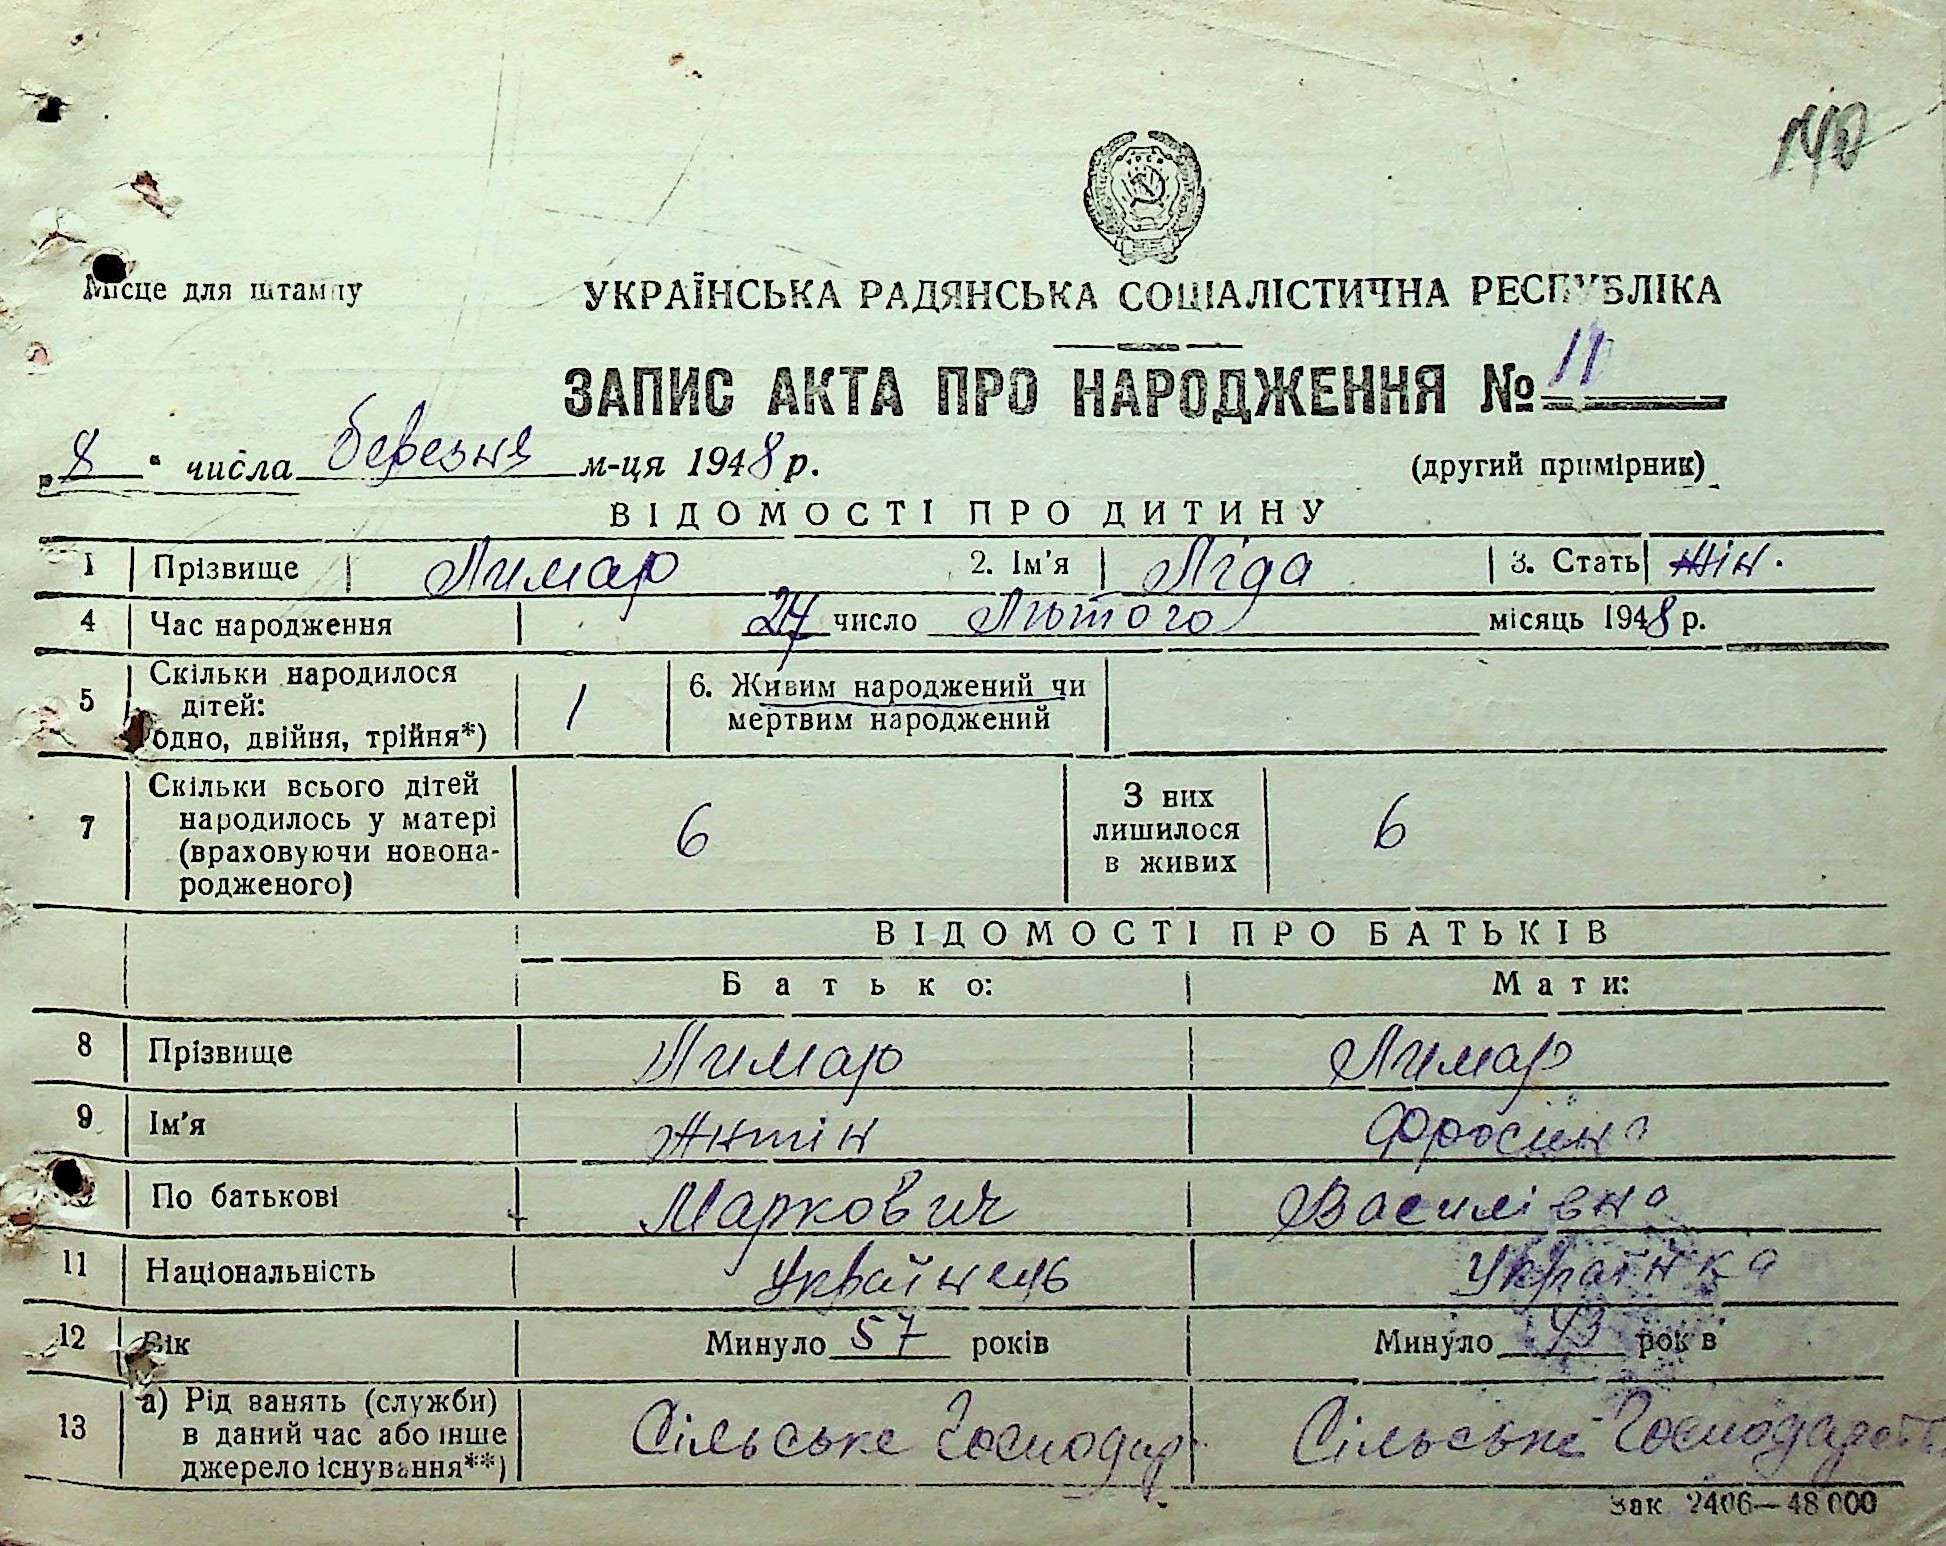 140
УРСР
Місце для штампу
УКРАЇНСЬКА РАДЯНСЬКА СОЦІАЛІСТИЧНА РЕСПУБЛІКА
ЗАПИС АКТА ПРО НАРОДЖЕННЯ № 11
„8“ числа березня м-ця 1948 р. (другий примірник)
ВІДОМОСТІ ПРО ДИТИНУ
1 Прізвище Лимар 2. Ім'я Ліда 3. Стать жін.
4 Час народження 27 число Лютого місяць 1948 р.
5 Скільки народилося дітей: одно, двійня, трійня*) 1 6. Живим народжений чи мертвим народжений
7 Скільки всього дітей народилось у матері (враховуючи новонародженого) 6 З них лишилося в живих 6
ВІДОМОСТІ ПРО БАТЬКІВ
Батько: Мати:
8 Прізвище Лимар Лимар
9 Ім'я Антін Фросина
По батькові Маркович Василівна
11 Національність Українець Українка
12 Вік Минуло 57 років Минуло 43 рок в
13 а) Рід занять (служби) в даний час або інше джерело існування**) Сільське Господар Сільське Господарст
Зак 2406—48 000